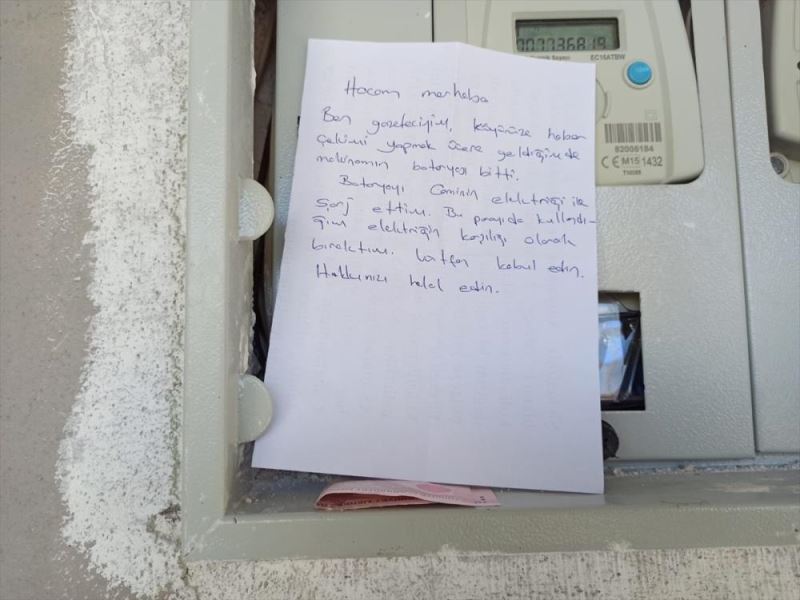 00036819
EC16ATBW
Hocam merhaba
Ben gazeteciyim, köyünüze haber
çekimi yapmak üzere geldiğimde
makinamın bataryası bitti.
Bataryayı Caminin elektriği ile
şarj ettim. Bu parayıda kullandı-
ğım elektriğin karşılığı olarak
bıraktım. Lütfen kabul edin.
Hakkınızı helal edin.
82006184
CE M15 1432